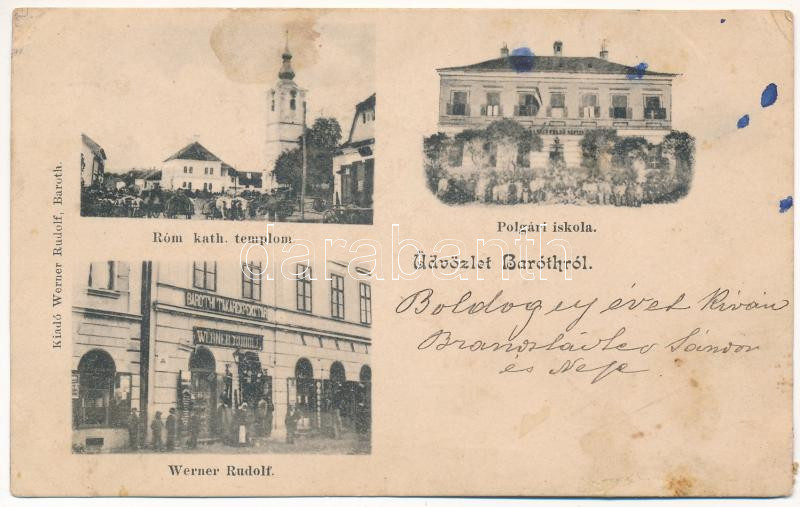 Kiadó Werner Rudolf, Baroth.
Róm kath. templom
Polgári iskola.
Üdvözlet Baróthról.
darabanth
BARÓTHI TAKARÉKPÉNZTÁR
WERNER RUDOLF
Werner Rudolf.
Boldog uj évet kiván
Sándor
és Neje